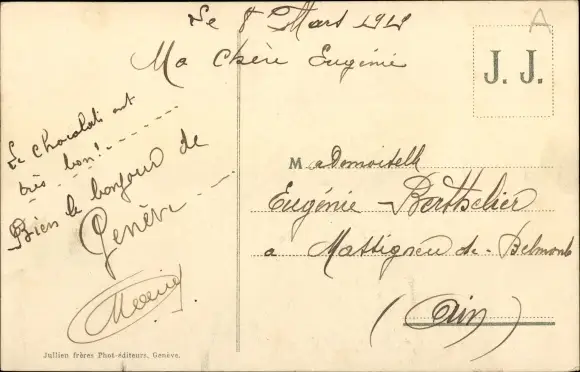 Le 8 Mars 191
Ma Chère Eugénie
Le Chocolat est
très bon!
Bien le bonjour de
Genève
A
J. J.
Mademoiselle
Eugénie Berthelier
a Massigneu de Belmont
(Ain)
Jullien frères Phot-éditeurs, Genève.